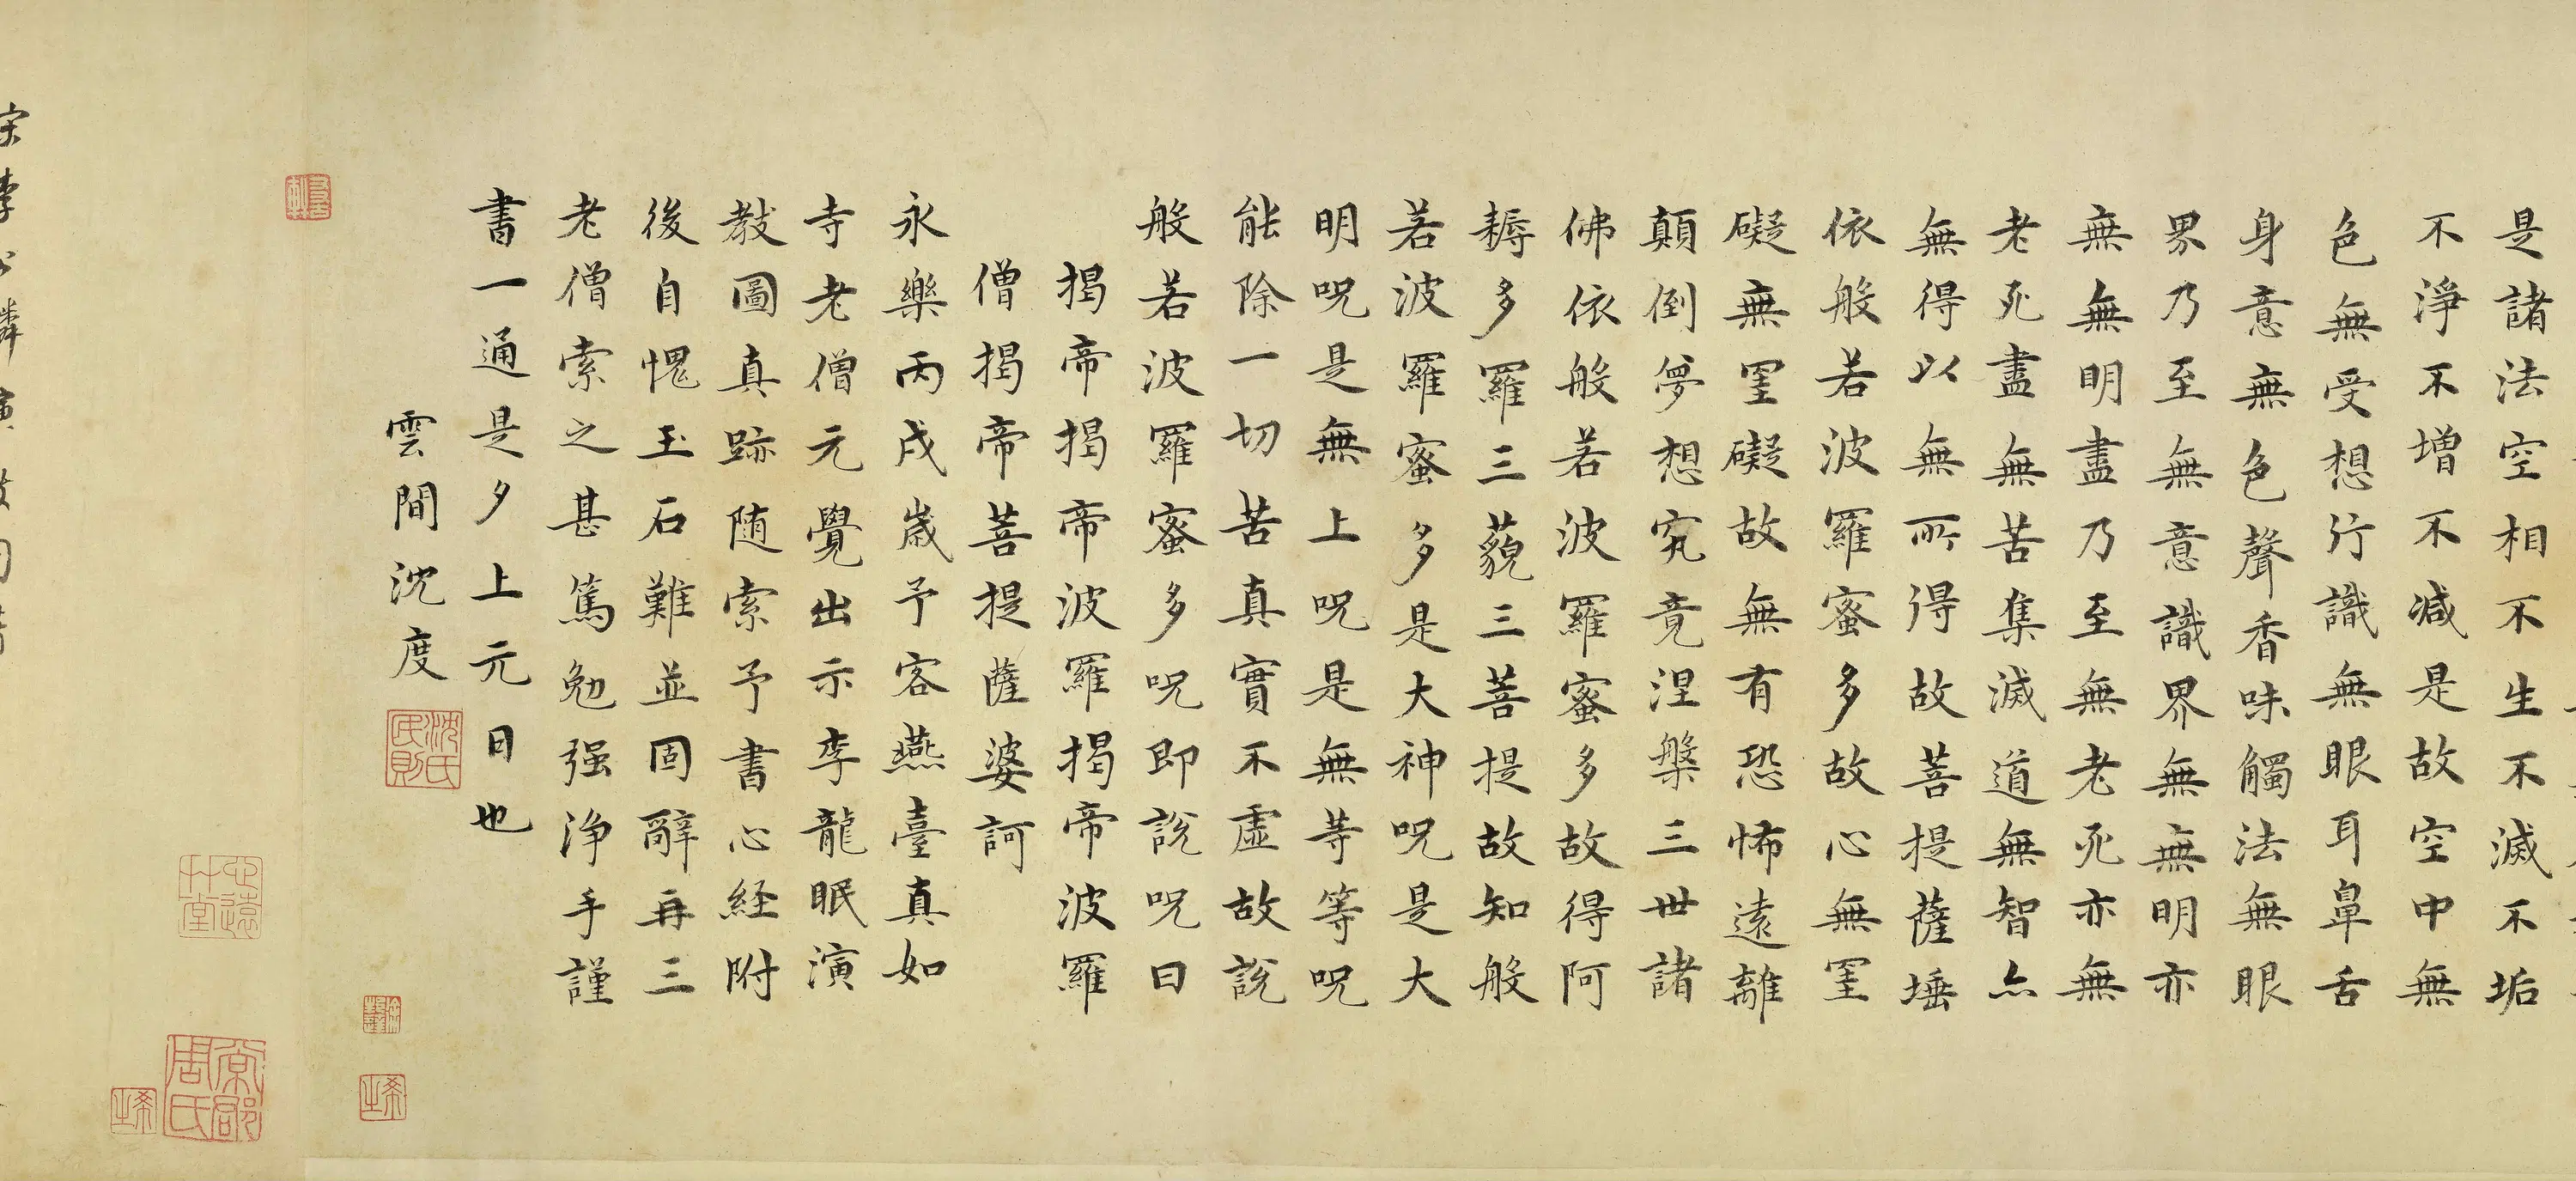 是諸法空相不生不滅不垢
不淨不增不減是故空中無
色無受想行識無眼耳鼻舌
身意無色聲香味觸法無眼
界乃至無意識界無無明亦
無無明盡乃至無老死亦無
老死盡無苦集滅道無智亦
無得以無所得故菩提薩埵
依般若波羅蜜多故心無罣
礙無罣礙故無有恐怖遠離
顛倒夢想究竟涅槃三世諸
佛依般若波羅蜜多故得阿
耨多羅三藐三菩提故知般
若波羅蜜多是大神呪是大
明呪是無上呪是無等等呪
能除一切苦真實不虛故說
般若波羅蜜多呪即說呪曰
揭帝揭帝波羅揭帝波羅
僧揭帝菩提薩婆訶
永樂丙戌歲予客燕臺真如
寺老僧元覺出示李龍眠演
教圖真跡随索予書心経附
後自愧玉石難並固辭再三
老僧索之甚篤勉强浄手謹
書一通是夕上元日也
雲間沈度
沈氏民則
宋李公麟演教圖